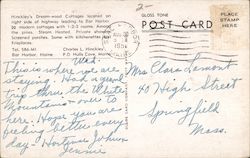 Hinckley's Dream-wood Cottages located on
right side of highway leading to Bar Harbor.
20 modern cottages with 1-2-3 rooms. Among
the pines. Steam Heated. Private showers.
Screened porches. Some with kitchenettes and
fireplaces.
Tel. 584-M1 Charles L. Hinckley,
Bar Harbor, Maine P.O. Hulls Cove, Maine
GLOSS TONE
POST CARD
PLACE
STAMP
HERE
AUG
1954
Wed.
This is where we are
staying. Had a grand
trip thru the White
Mountains over to
here. Hope you are
feeling better every
day. John
Jennie
Mrs Clara Lamont
40 High Street
Springfield
Mass.